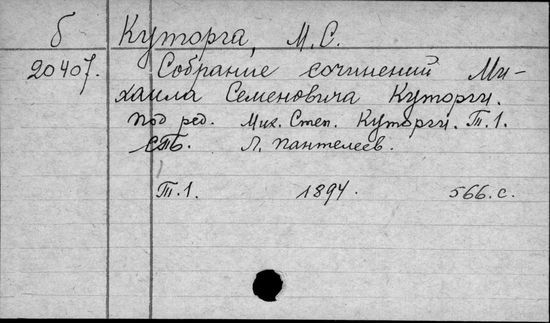 б Куторга, М. С.
20407. Собрание сочинений Ми-
хаила Семеновича Куторги.
Под ред. Мих. Степ. Куторги. Т. 1.
СПб. Л. Пантелеев.
Т. 1. 1894. 566. с.